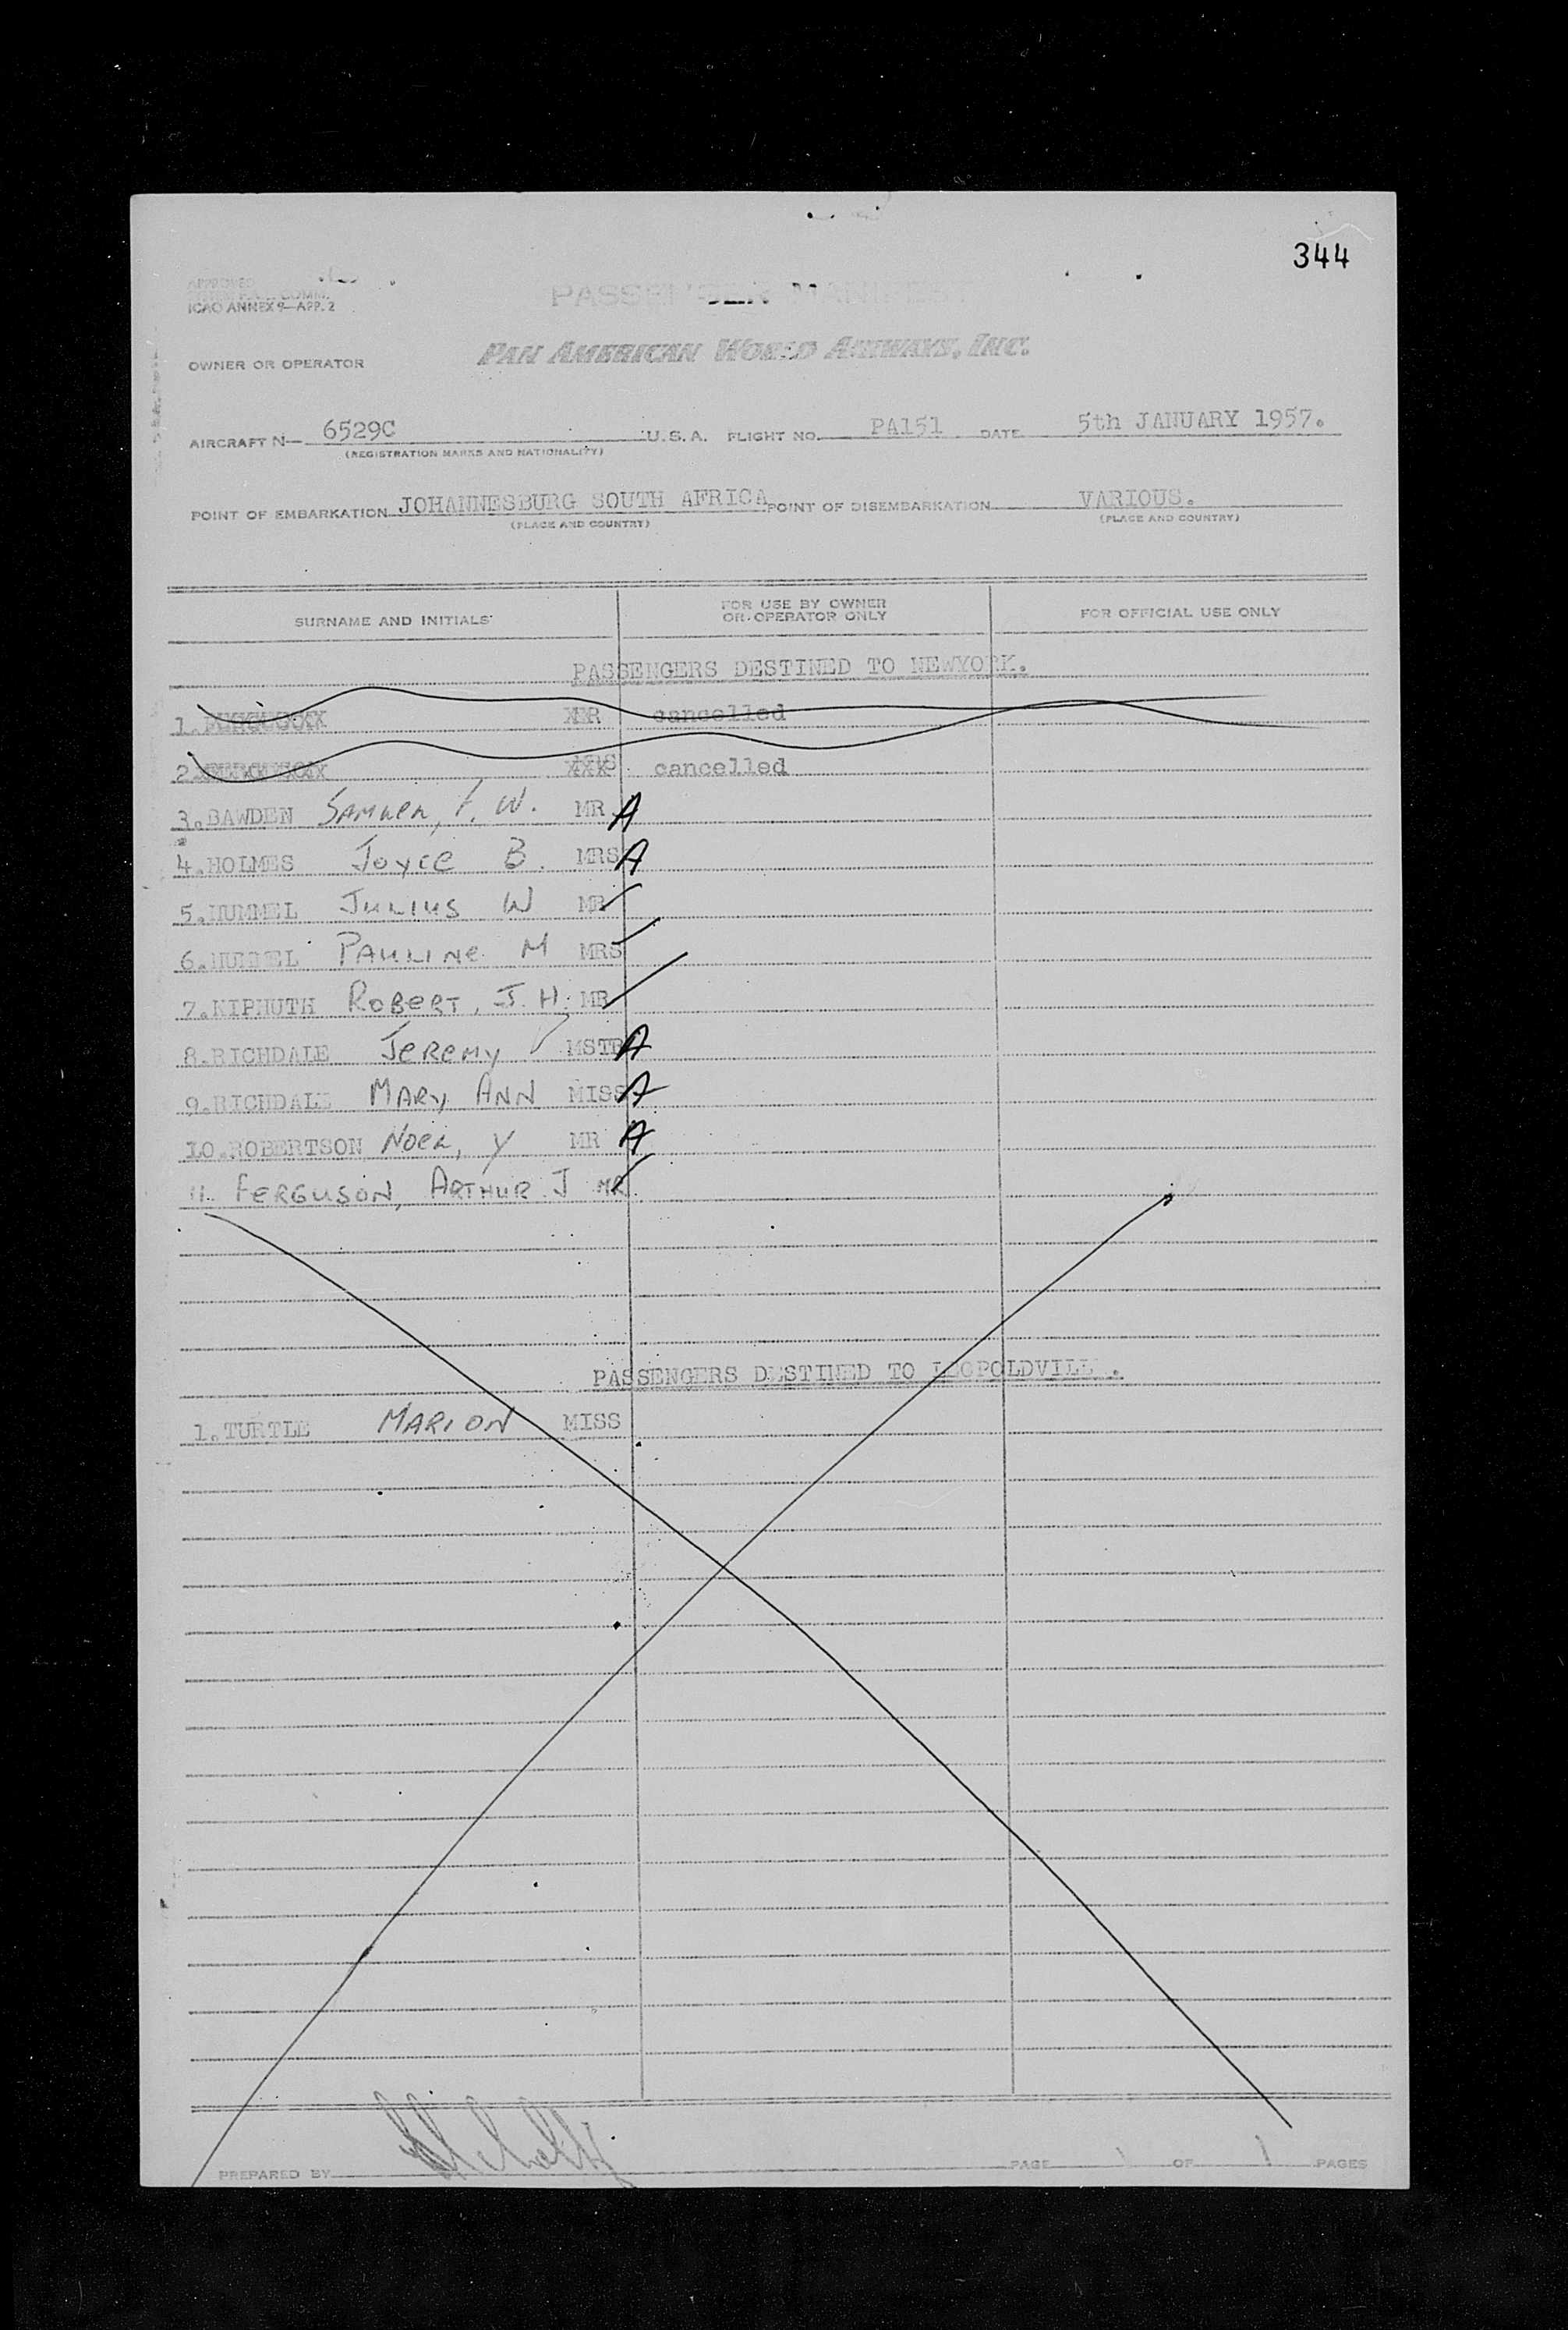 344
APPROVED
ICAO ANNEX 9—APP. 2
PASSENGER MANIFEST
OWNER OR OPERATOR PAN AMERICAN WORLD AIRWAYS, INC.
AIRCRAFT N— 6529C U.S.A. FLIGHT NO. PA151 DATE 5th JANUARY 1957.
(REGISTRATION MARKS AND NATIONALITY)
POINT OF EMBARKATION JOHANNESBURG SOUTH AFRICA POINT OF DISEMBARKATION VARIOUS.
(PLACE AND COUNTRY) (PLACE AND COUNTRY)
SURNAME AND INITIALS FOR USE BY OWNER OR OPERATOR ONLY FOR OFFICIAL USE ONLY
PASSENGERS DESTINED TO NEWYORK.
1. cancelled
2. cancelled
3. BAWDEN W. MR A
4. HOLMES Joyce B. MRS A
5. HUMMEL JULIUS W MR
6. HUMMEL PAULINE M MRS
7. KIPHUTH ROBERT, J. H. MR
8. RICHDALE JEREMY MSTR A
9. RICHDALE MARY ANN MISS A
10. ROBERTSON NOEL, Y MR A
11. FERGUSON, ARTHUR J MR
PASSENGERS DESTINED TO LEOPOLDVILLE.
1. TURTLE MARION MISS
PREPARED BY PAGE 1 OF 1 PAGES